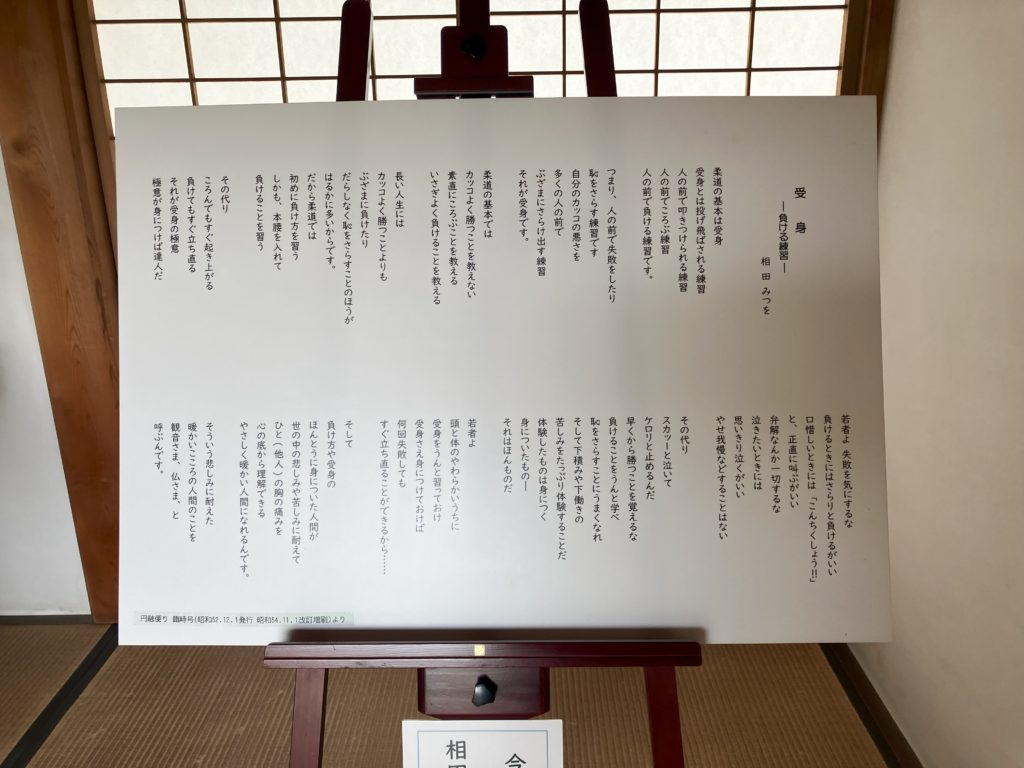 受 身
―負ける練習―
相田 みつを
柔道の基本は受身
受身とは投げ飛ばされる練習
人の前で叩きつけられる練習
人の前でころぶ練習
人の前で負ける練習です。
つまり、人の前で失敗をしたり
恥をさらす練習です
自分のカッコの悪さを
多くの人の前で
ぶざまにさらけ出す練習
それが受身です。
柔道の基本では
カッコよく勝つことを教えない
素直にころぶことを教える
いさぎよく負けることを教える
長い人生には
カッコよく勝つことよりも
ぶざまに負けたり
だらしなく恥をさらすことのほうが
はるかに多いからです。
だから柔道では
初めに負け方を習う
しかも、本腰を入れて
負けることを習う
その代り
ころんでもすぐ起き上がる
負けてもすぐ立ち直る
それが受身の極意
極意が身につけば達人だ
若者よ 失敗を気にするな
負けるときにはさらりと負けるがいい
口惜しいときには「こんちくしょう!!」
と、正直に叫ぶがいい
弁解なんか一切するな
泣きたいときには
思いきり泣くがいい
やせ我慢などすることはない
その代り
スカッーと泣いて
ケロリと止めるんだ
早くから勝つことを覚えるな
負けることをうんと学べ
恥をさらすことにうまくなれ
そして下積みや下働きの
苦しみをたっぷり体験することだ
体験したものは身につく
身についたもの―
それはほんものだ
若者よ
頭と体のやわらかいうちに
受身をうんと習っておけ
受身さえ身につけておけば
何回失敗しても
すぐ立ち直ることができるから……
そして
負け方や受身の
ほんとうに身についた人間が
世の中の悲しみや苦しみに耐えて
ひと(他人)の胸の痛みを
心の底から理解できる
やさしく暖かい人間になれるんです。
そういう悲しみに耐えた
暖かいこころの人間のことを
観音さま、仏さま、と
呼ぶんです。
円融便り 臨時号(昭和52.12.1発行 昭和54.11.1改訂増刷)より
今
相田